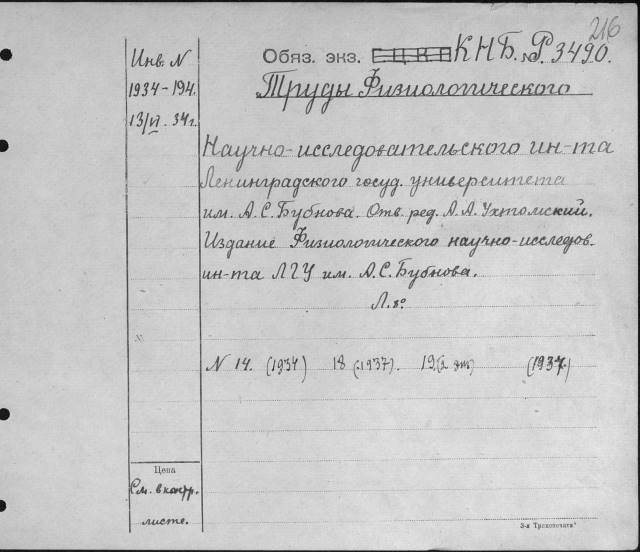 216
Обяз. экз. Е Ц К В П КНБ. №Р.3490.
Инв. N
1934-194.
13/VI. 34г.
Труды Физиологического
Научно-исследовательского ин-та
Ленинградского госуд. университета
им. А.С. Бубнова. Отв. ред. А.А. Ухтомский.
Издание Физиологического научно-исследов.
ин-та ЛГУ им. А.С. Бубнова.
Л. 8°
N 14. (1934) 18 (1937). 19 (2 экз) (1937)
Цена
См. в контр.
листе.
3-я Трансвечать